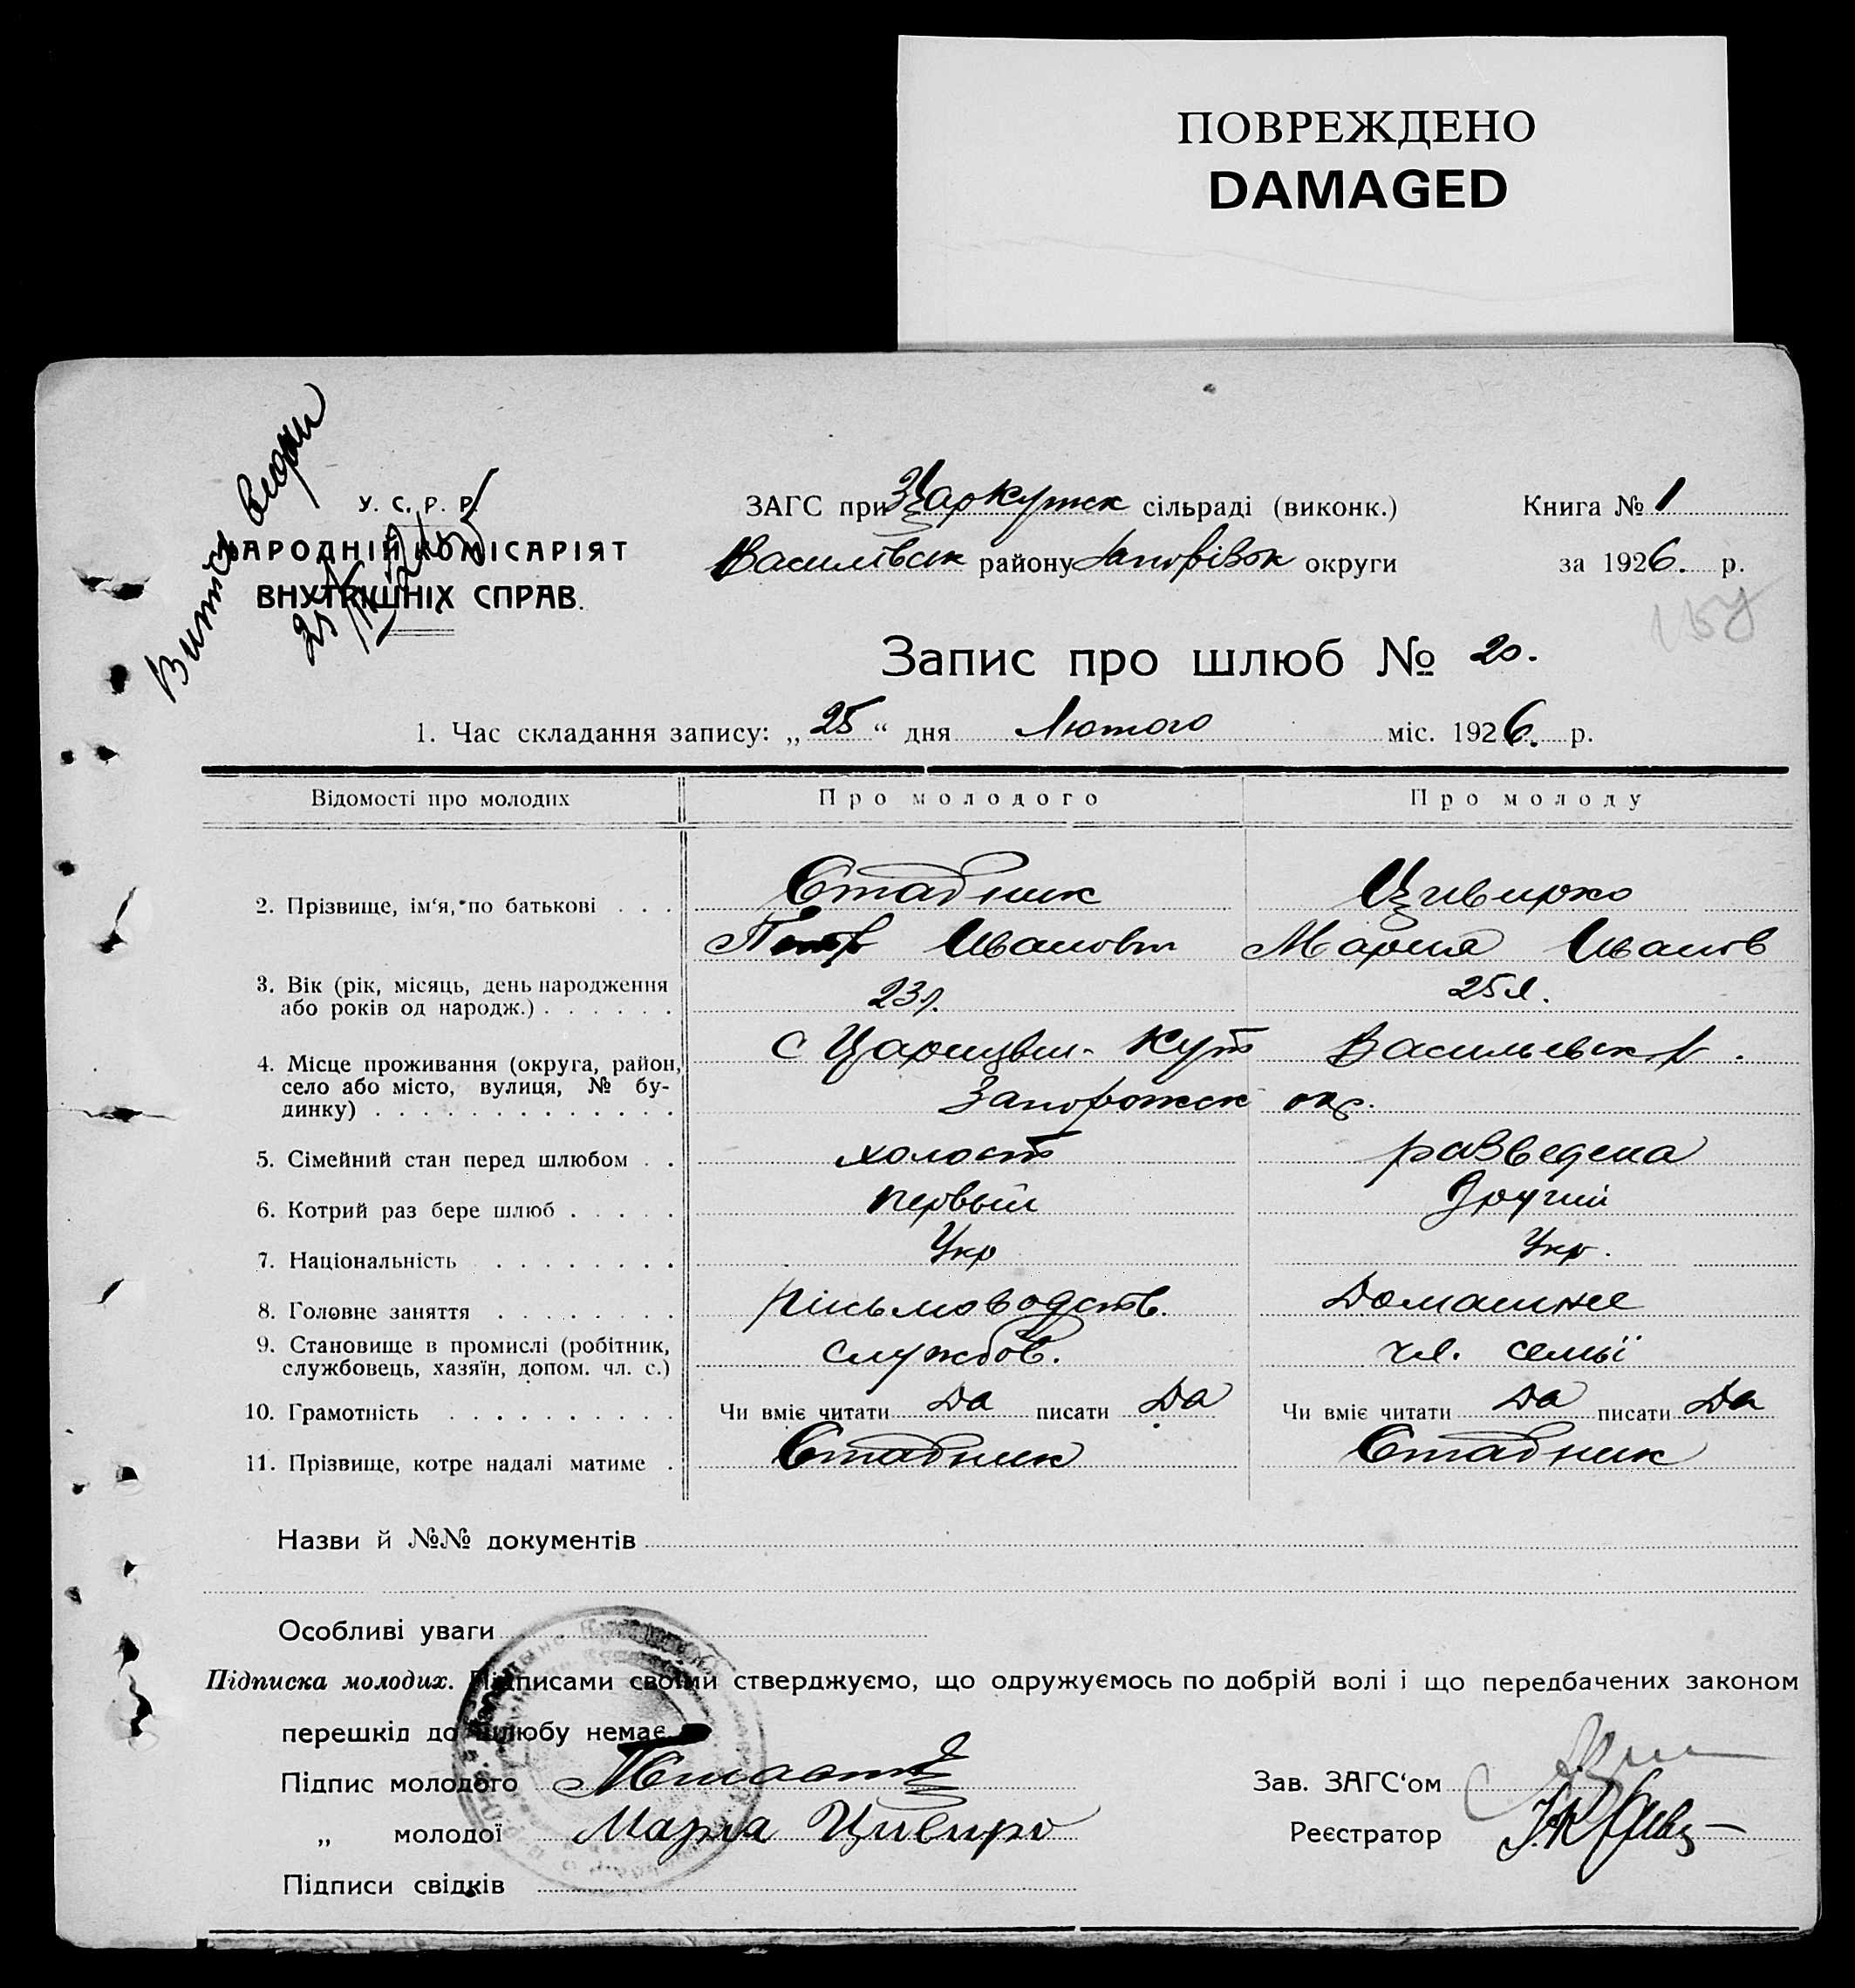 ПОВРЕЖДЕНО
DAMAGED
Витяг видан
У. С. Р. Р.
НАРОДНІЙ КОМІСАРІЯТ
ВНУТРІШНІХ СПРАВ.
ЗАГС при Царкутск сільраді (виконк.) Книга № 1
Василівськ району округи за 1926. р.
Запис про шлюб № 20.
1. Час складання запису: „25“ дня Лютого міс. 1926. р.
Відомості про молодих Про молодого Про молоду
2. Прізвище, ім‘я, по батькові . . . Стадник Цивирко
Петр Иванович Мария Иванов
3. Вік (рік, місяць, день народження 23 л. 25 л.
або років од народж.) . . . . . .
4. Місце проживання (округа, район, с Царицын-Кут Васильевск р.
село або місто, вулиця, № бу-
динку) . . . . . . . . . . . . . Запорожск окр.
5. Сімейний стан перед шлюбом . . холост разведена
6. Котрий раз бере шлюб . . . . . первый другий
7. Національність . . . . . . . . Укр Укр.
8. Головне заняття . . . . . . . письмоводств. Домашнее
9. Становище в промислі (робітник, службов. чл. семьї
службовець, хазяїн, допом. чл. с.)
10. Грамотність . . . . . . . . . . Чи вміє читати Да писати Да Чи вміє читати Да писати Да
11. Прізвище, котре надалі матиме . Стадник Стадник
Назви й №№ документів
Особливі уваги
Підписка молодих. Підписами своїми стверджуємо, що одружуємось по добрій волі і що передбачених законом
перешкід до шлюбу немає.
Підпис молодого Зав. ЗАГС‘ом
„ молодої Мария Цивирко Реєстратор
Підписи свідків